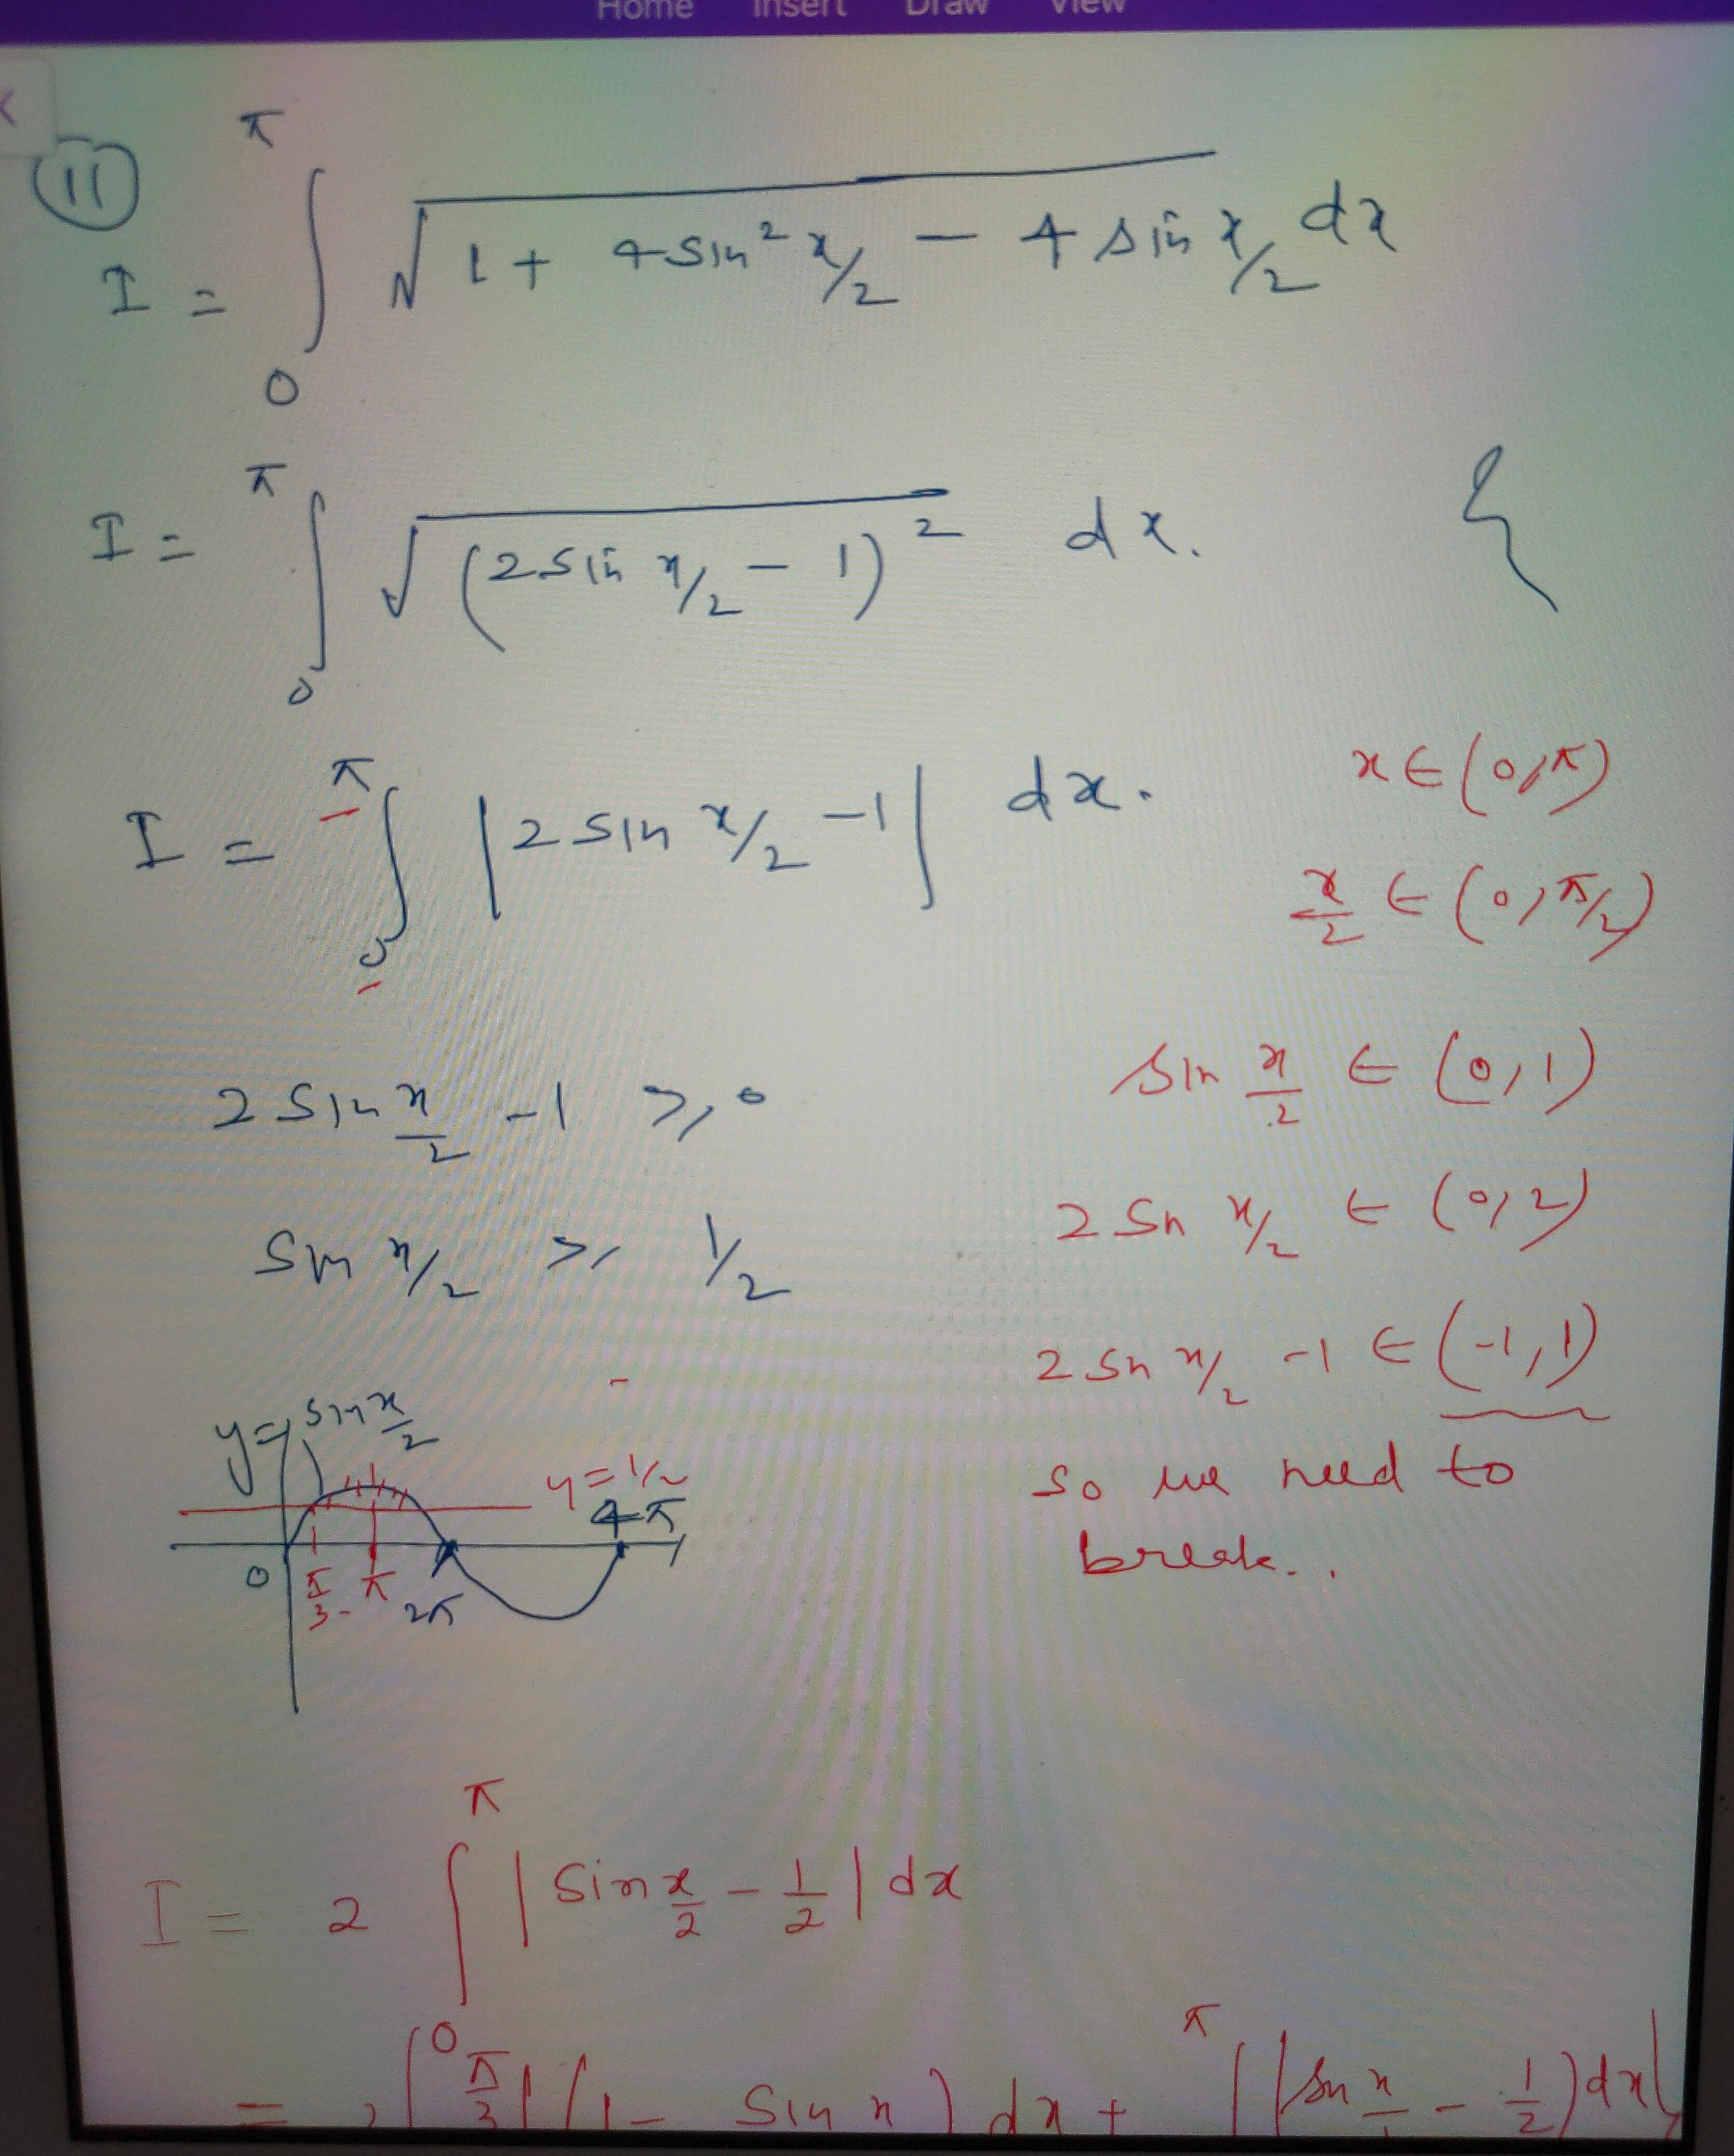 Home Insert Draw View
11
I = ∫₀^π √(1 + 4 sin² x/2 − 4 sin x/2) dx
I = ∫₀^π √((2 sin x/2 − 1)²) dx.
I = ∫₀^π |2 sin x/2 − 1| dx.
x ∈ (0, π)
x/2 ∈ (0, π/2)
2 sin x/2 − 1 ≥ 0
sin x/2 ∈ (0, 1)
sin x/2 ≥ 1/2
2 sn x/2 ∈ (0, 2)
2 sn x/2 − 1 ∈ (−1, 1)
so we need to
break..
y = sin x/2
y = 1/2
4π
0 π/3 π 2π
I = 2 ∫₀^π |sin x/2 − 1/2| dx